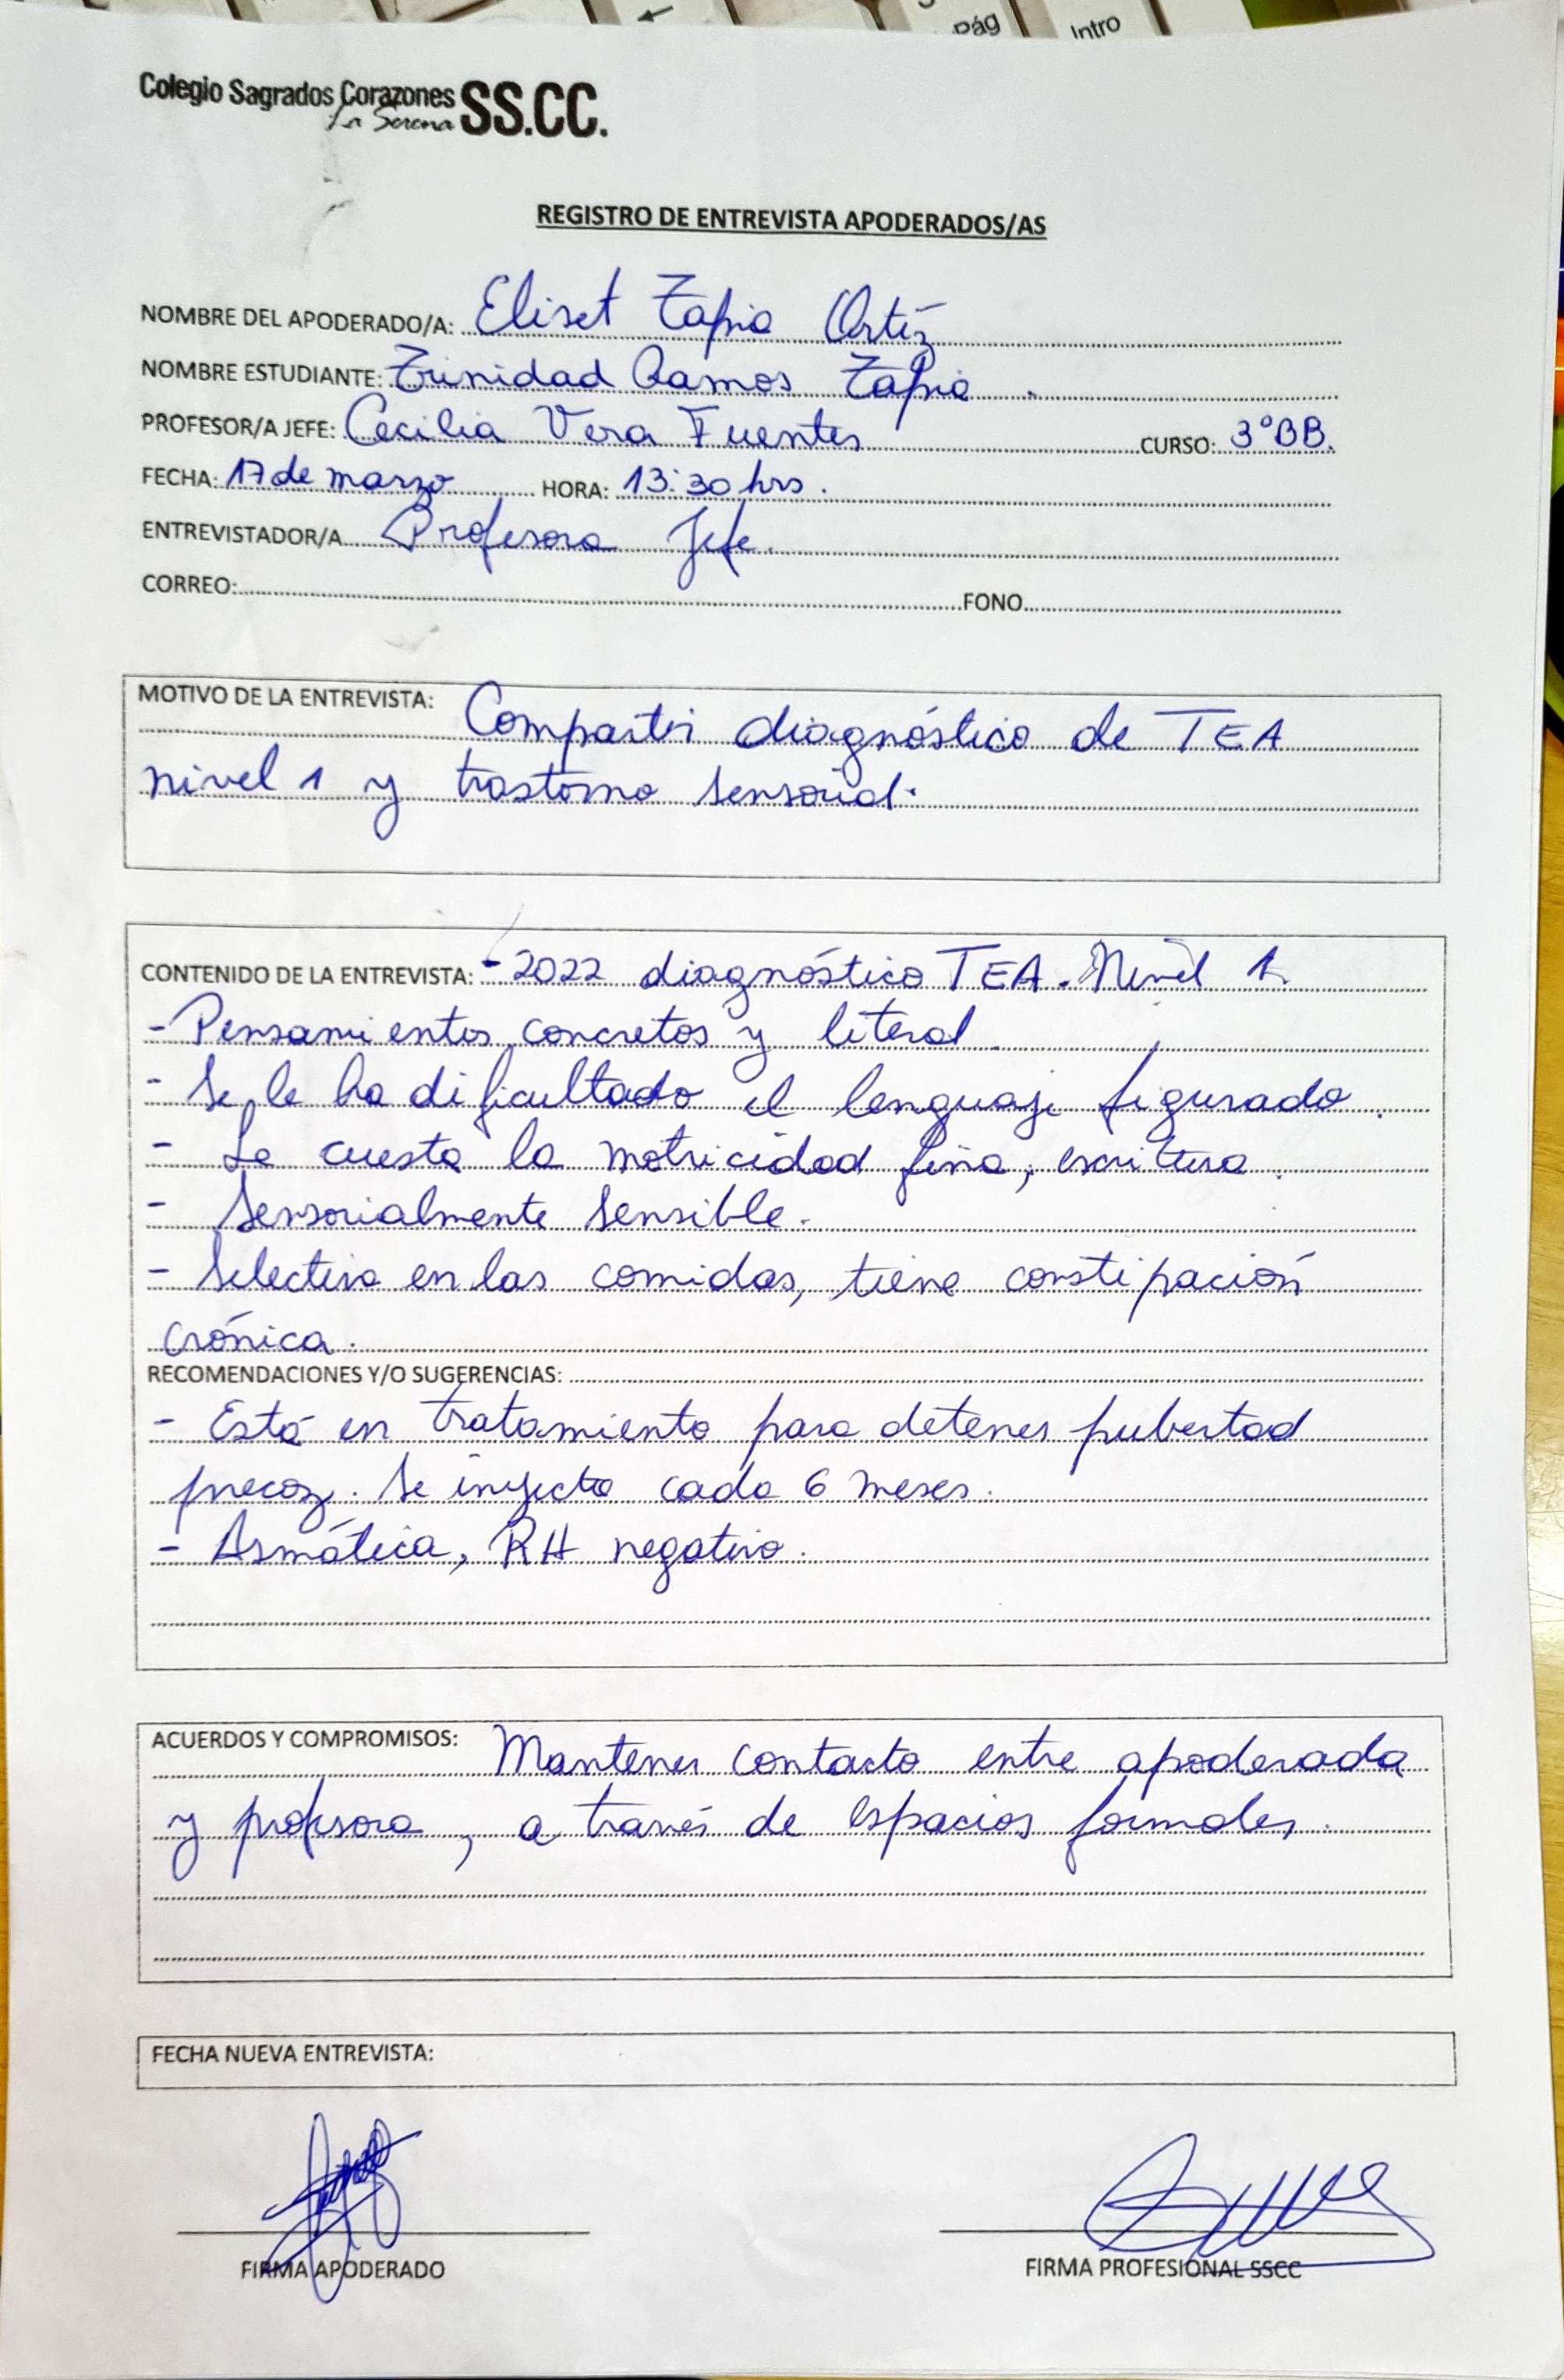 Pág
Intro
Colegio Sagrados Corazones SS.CC.
La Serena
REGISTRO DE ENTREVISTA APODERADOS/AS
NOMBRE DEL APODERADO/A: Eliset Tapia Ortíz
NOMBRE ESTUDIANTE: Trinidad Ramos Tapia.
PROFESOR/A JEFE: Cecilia Vera Fuentes CURSO: 3°BB.
FECHA: 17 de marzo HORA: 13:30 hrs.
ENTREVISTADOR/A Profesora Jefe.
CORREO: FONO
MOTIVO DE LA ENTREVISTA: Compartir diagnóstico de TEA
nivel 1 y trastorno sensorial.
CONTENIDO DE LA ENTREVISTA: - 2022 diagnóstico TEA. Nivel 1
- Pensamientos concretos y literal.
- Se le ha dificultado el lenguaje figurado.
- Le cuesta la motricidad fina, escritura.
- Sensorialmente sensible.
- Selectiva en las comidas, tiene constipación
crónica.
RECOMENDACIONES Y/O SUGERENCIAS:
- Está en tratamiento para detener pubertad
precoz. Se inyecta cada 6 meses.
- Asmática, RH negativo.
ACUERDOS Y COMPROMISOS: Mantener contacto entre apoderada
y profesora, a través de espacios formales.
FECHA NUEVA ENTREVISTA:
FIRMA APODERADO FIRMA PROFESIONAL SSCC